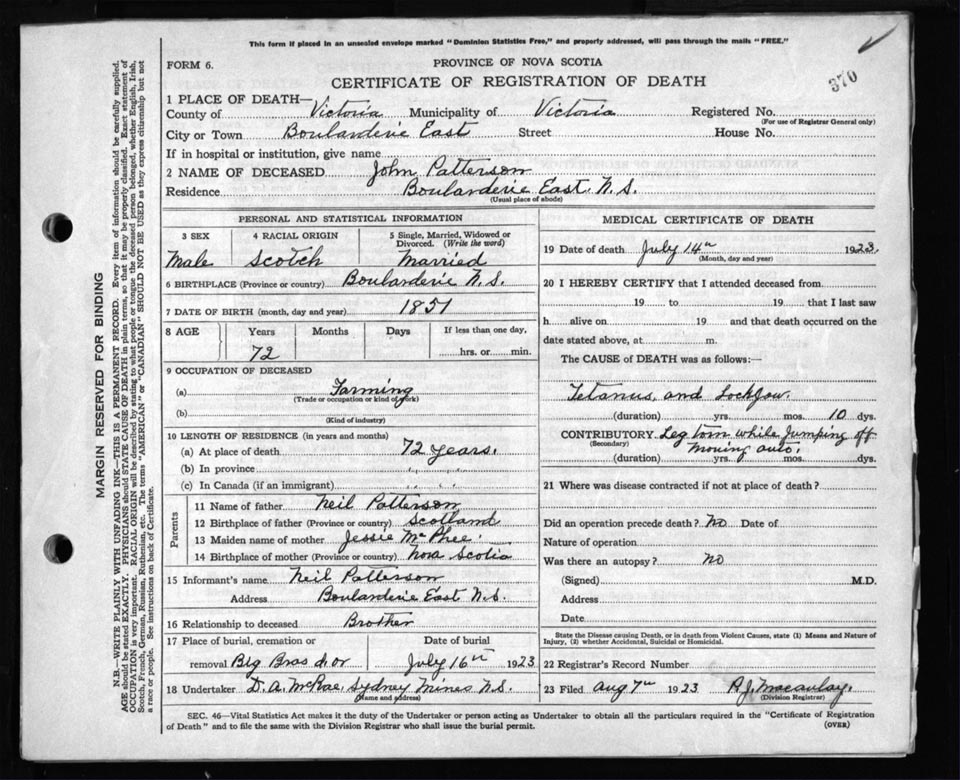 This form if placed in an unsealed envelope marked "Dominion Statistics Free," and properly addressed, will pass through the mails "FREE."
FORM 6.
PROVINCE OF NOVA SCOTIA
370
CERTIFICATE OF REGISTRATION OF DEATH
1 PLACE OF DEATH—
County of Victoria Municipality of Victoria Registered No.
(For use of Registrar General only)
City or Town Boularderie East Street House No.
If in hospital or institution, give name
2 NAME OF DECEASED John Patterson
Residence Boularderie East N.S.
(Usual place of abode)
PERSONAL AND STATISTICAL INFORMATION
3 SEX 4 RACIAL ORIGIN 5 Single, Married, Widowed or Divorced. (Write the word)
Male Scotch Married
6 BIRTHPLACE (Province or country) Boularderie N.S.
7 DATE OF BIRTH (month, day and year) 1851
8 AGE Years Months Days If less than one day,
72 hrs. or min.
9 OCCUPATION OF DECEASED
(a) Farming
(Trade or occupation or kind of work)
(b)
(Kind of industry)
10 LENGTH OF RESIDENCE (in years and months)
(a) At place of death 72 years.
(b) In province " "
(c) In Canada (if an immigrant) " "
Parents
11 Name of father Neil Patterson
12 Birthplace of father (Province or country) Scotland
13 Maiden name of mother Jessie McPhee
14 Birthplace of mother (Province or country) Nova Scotia
15 Informant's name Neil Patterson
Address Boularderie East N.S.
16 Relationship to deceased Brother
17 Place of burial, cremation or Date of burial
removal Big Bras d'or July 16th 1923
18 Undertaker D. A. McRae. Sydney Mines N.S.
(Name and address)
MEDICAL CERTIFICATE OF DEATH
19 Date of death July 14th 1923.
(Month, day and year)
20 I HEREBY CERTIFY that I attended deceased from
19 to 19 that I last saw
h alive on 19 and that death occurred on the
date stated above, at m.
The CAUSE of DEATH was as follows:—
Tetanus, and Lockjaw.
(duration) yrs. mos. 10 dys.
CONTRIBUTORY Leg torn while jumping off
(Secondary) moving auto.
(duration) yrs. mos. dys.
21 Where was disease contracted if not at place of death?
Did an operation precede death? No Date of
Nature of operation
Was there an autopsy? No
(Signed) M.D.
Address
Date
State the Disease causing Death, or in death from Violent Causes, state (1) Means and Nature of
Injury, (2) whether Accidental, Suicidal or Homicidal.
22 Registrar's Record Number
23 Filed Aug 7th 1923 R.J. Macaulay.
(Division Registrar)
SEC. 46—Vital Statistics Act makes it the duty of the Undertaker or person acting as Undertaker to obtain all the particulars required in the "Certificate of Registration
of Death" and to file the same with the Division Registrar who shall issue the burial permit.
(OVER)
MARGIN RESERVED FOR BINDING
N.B.—WRITE PLAINLY WITH UNFADING INK—THIS IS A PERMANENT RECORD. Every item of information should be carefully supplied.
AGE should be stated EXACTLY. PHYSICIANS should STATE CAUSE OF DEATH in plain terms, so that it may be properly classified. Exact statement of
OCCUPATION is very important. RACIAL ORIGIN will be described by stating to what people or tongue the deceased person belonged, whether English, Irish,
Scotch, French, German, Russian, Ruthenian, etc. The terms "AMERICAN" or "CANADIAN" SHOULD NOT BE USED as they express citizenship but not
a race or people. See instructions on back of Certificate.